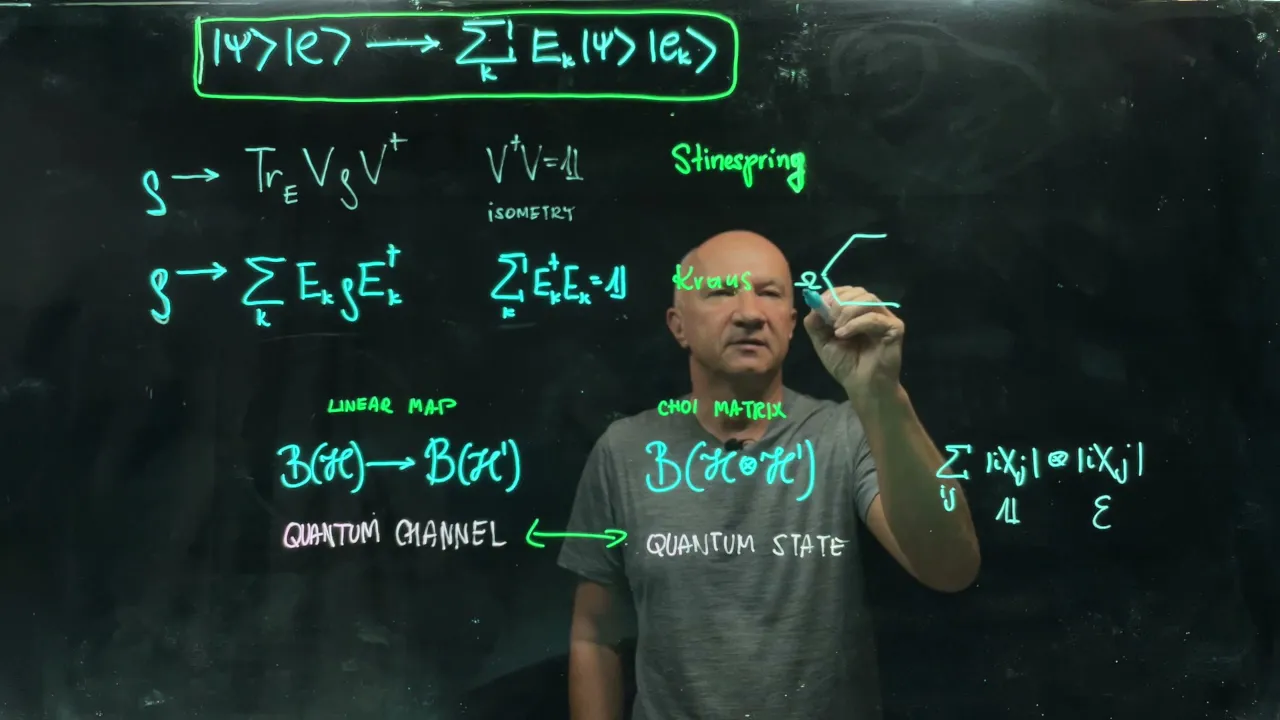 |Ψ⟩|e⟩ → ∑ₖ Eₖ|Ψ⟩|eₖ⟩
ρ → Tr_E VρV† V†V=𝟙 Stinespring
ISOMETRY
ρ → ∑ₖ EₖρEₖ† ∑ₖ Eₖ†Eₖ=𝟙 Kraus Ω
LINEAR MAP CHOI MATRIX
B(ℋ) → B(ℋ') B(ℋ⊗ℋ') ∑ᵢⱼ |i⟩⟨j| ⊗ |i⟩⟨j|
𝟙 ℰ
QUANTUM CHANNEL ↔ QUANTUM STATE